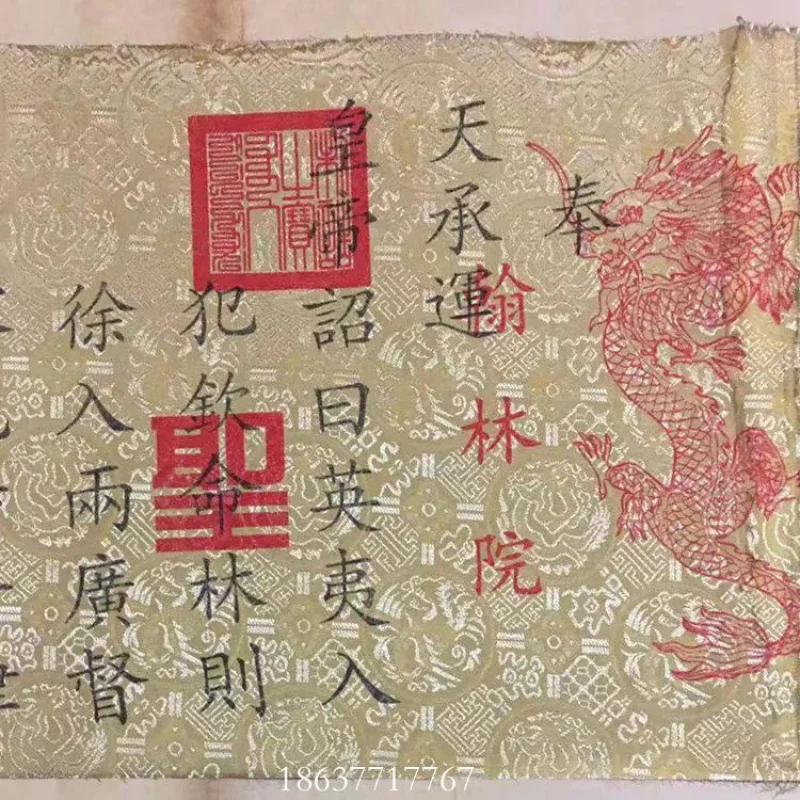 奉
天承運
皇帝
詔曰英夷入
犯欽命林則
徐入兩廣督
翰林院
聖
之寶
18637717767